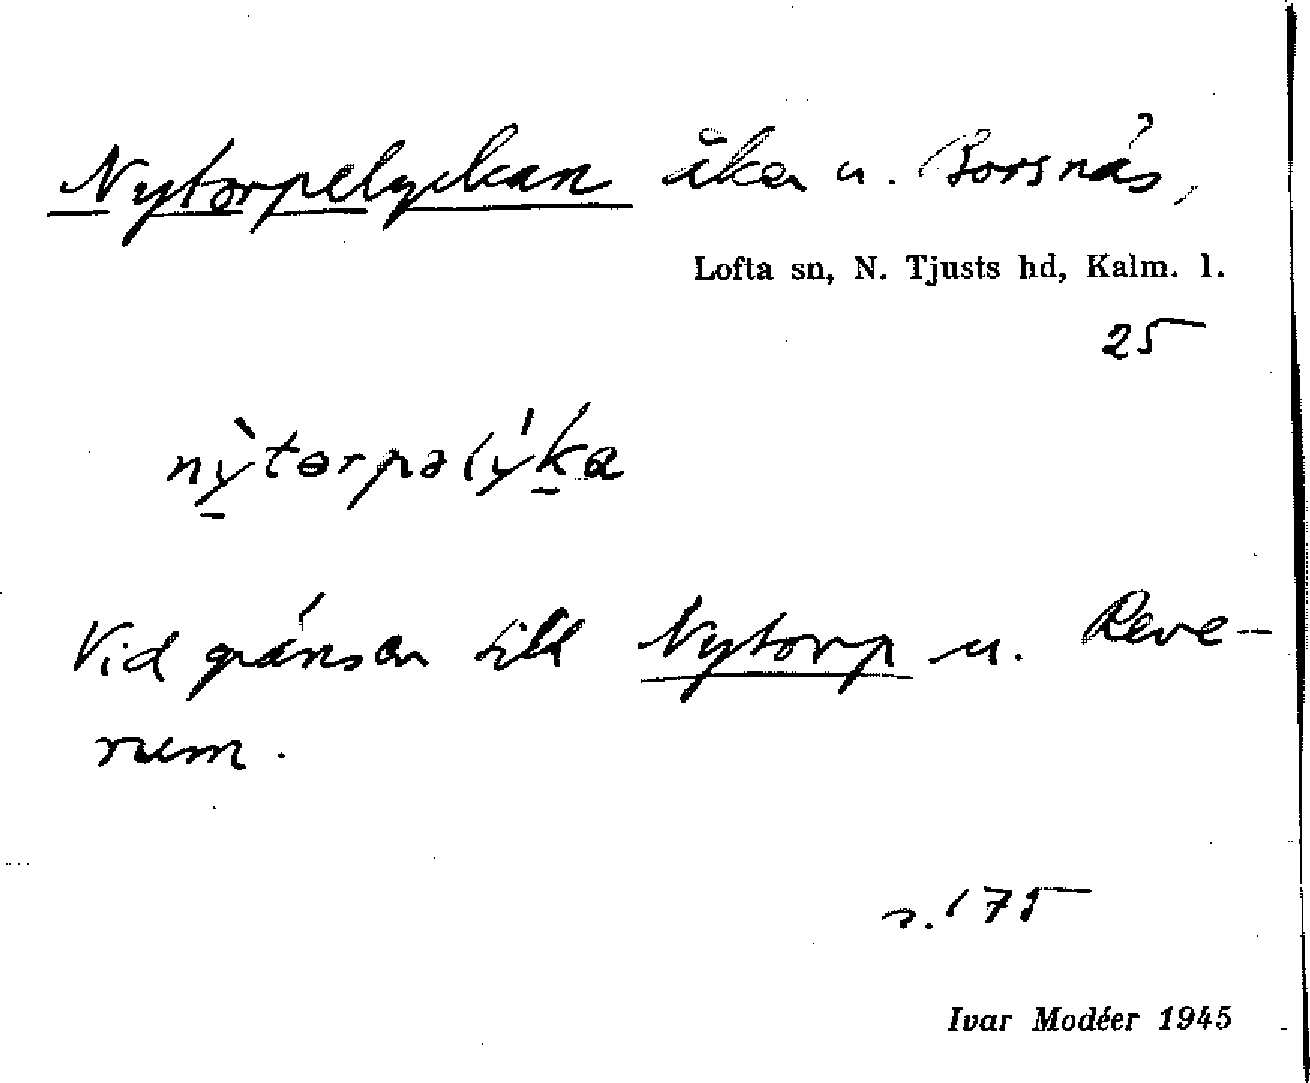 Nytorpelyckan åker u. Borsnäs,
Lofta sn, N. Tjusts hd, Kalm. l.
25
nỳtorpəlýka
Vid gränsen till Nytorp u. Reve-
rum.
s. 175
Ivar Modéer 1945